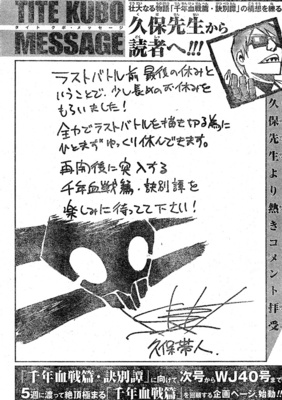 TITE KUBO
タイト クボ・メッセージ
MESSAGE
壮大なる物語「千年血戦篇・訣別譚」の構想を練る
久保先生から
読者へ!!!
ラストバトル前 最後の休みと
いうことで、少し長めのお休みを
もらいました!
全力でラストバトルを描き切る為に
ひとまず ゆっくり休んできます。
再開後に突入する
千年血戦篇・訣別譚を
楽しみに待ってて下さい!
久保帯人.
久保先生より熱きコメント拝受
「千年血戦篇・訣別譚」に向けて
次号からWJ40号まで
5週に渡って絶頂極まる
「千年血戦篇」
を回顧する企画ページ、始動!!